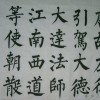 引駕大德
大達法師
江南西道
等使朝散